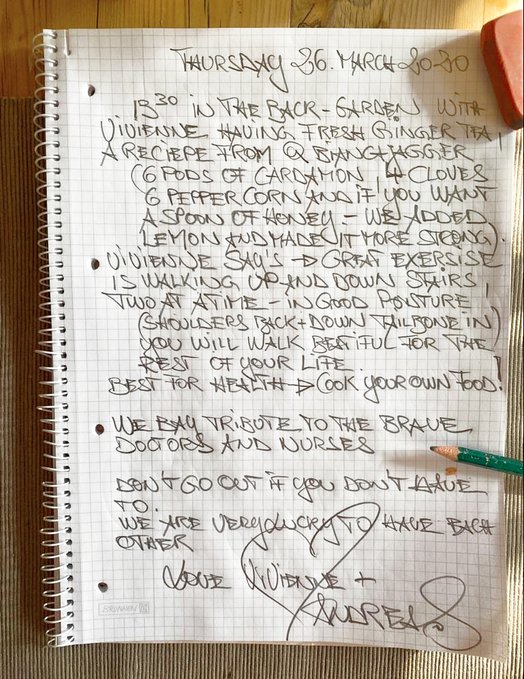 THURSDAY 26. MARCH 20-20
15³⁰ IN THE BACK-GARDEN WITH
VIVIENNE HAVING FRESH GINGER TEA,
A RECIEPE FROM BIANCA JAGGER
(6 PODS OF CARDAMON, 4 CLOVES
6 PEPPERCORN AND IF YOU WANT
A SPOON OF HONEY - WE ADDED
LEMON AND MADE IT MORE STRONG).
VIVIENNE SAY'S → GREAT EXERSISE
IS WALKING UP AND DOWN STAIRS,
TWO AT A TIME - IN GOOD POSTURE
(SHOULDERS BACK + DOWN TAILBONE IN)
YOU WILL WALK BESTIFUL FOR THE
REST OF YOUR LIFE.
BEST FOR HEALTH → COOK YOUR OWN FOOD!
WE BAY TRIBUTE TO THE BRAVE
DOCTORS AND NURSES
DON'T GO OUT IF YOU DON'T HAVE
TO.
WE ARE VERY LUCKY TO HAVE EACH
OTHER
LOVE VIVIENNE +
ANDREAS
BRUNNEN